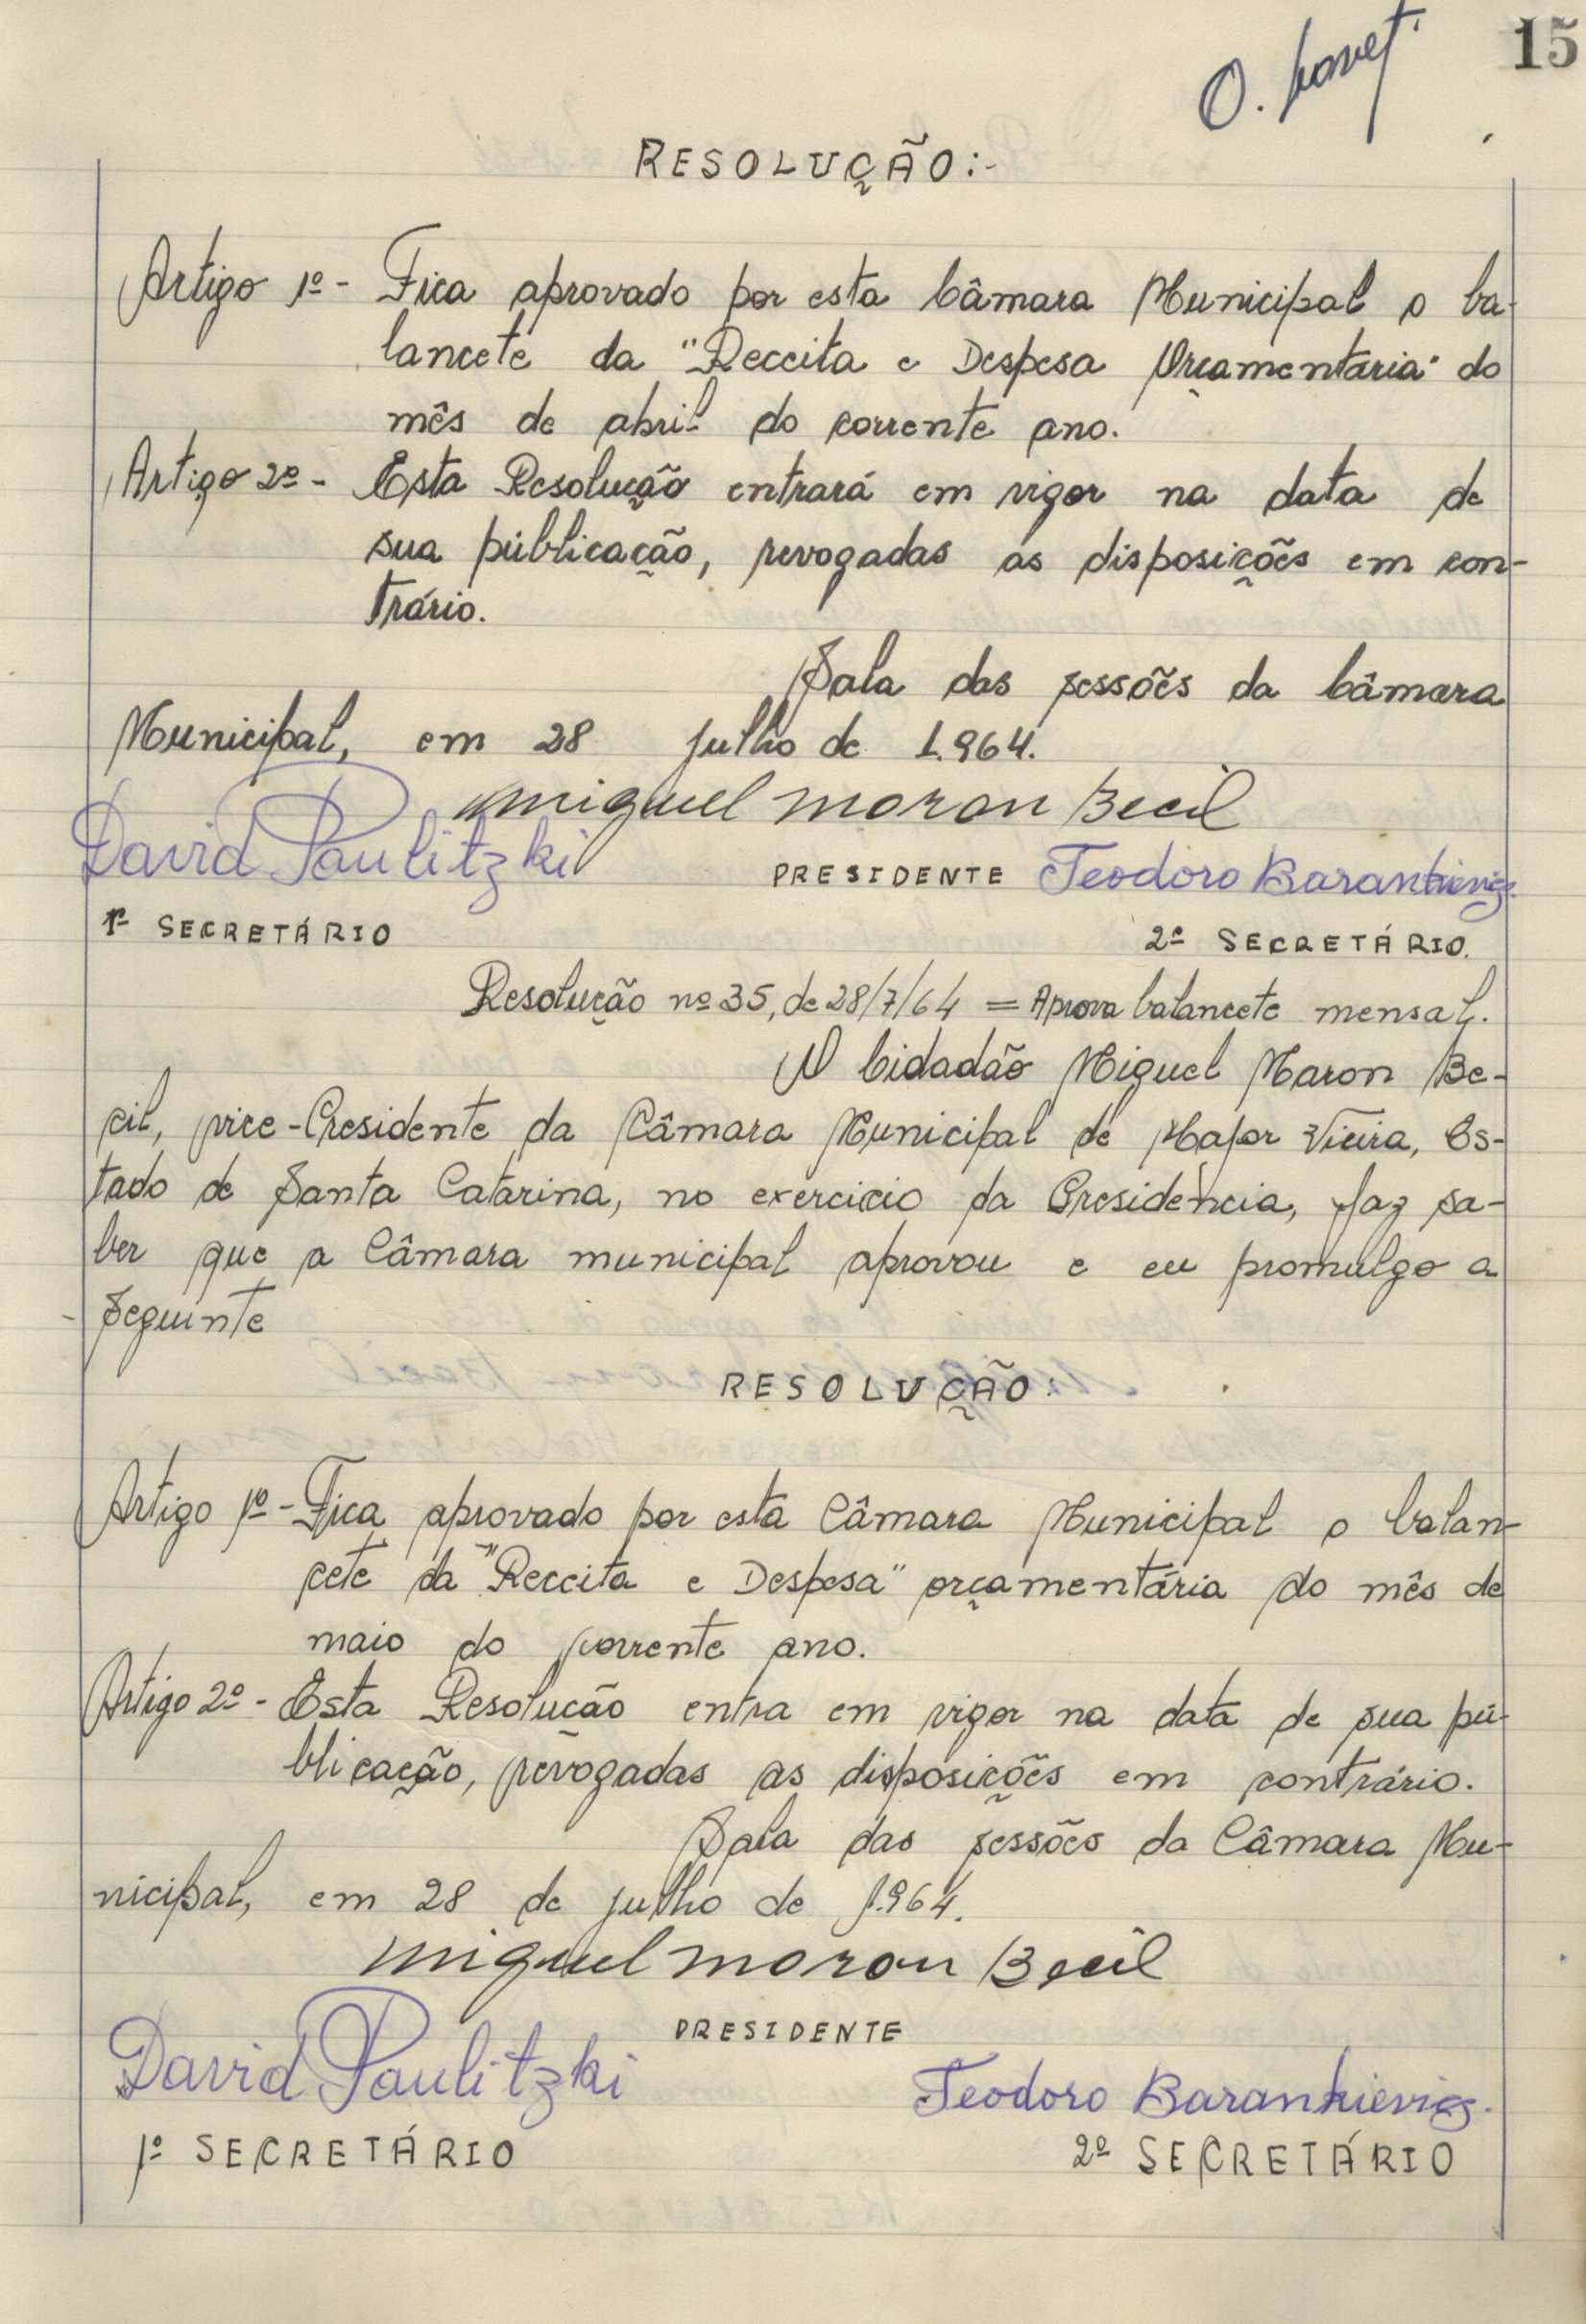 15
O.
RESOLUÇÃO:-
Artigo 1º - Fica aprovado por esta Câmara Municipal o ba-
lancete da "Receita e Despesa Orçamentária" do
mês de abril do corrente ano.
Artigo 2º - Esta Resolução entrará em vigor na data de
sua públicação, revogadas as disposições em con-
trário.
Sala das sessões da Câmara
Municipal, em 28 julho de 1.964.
Miguel Maron Becil
David Paulitzki
PRESIDENTE Teodoro Barankievicz
1º SECRETÁRIO
2º SECRETÁRIO.
Resolução nº 35, de 28/7/64 = Aprova balancete mensal.
O Cidadão Miguel Maron Be-
cil, vice-Presidente da Câmara Municipal de Major Vieira, Es-
tado de Santa Catarina, no exercicio da Presidência, faz sa-
ber que a Câmara municipal aprovou e eu promulgo a
seguinte
RESOLUÇÃO:
Artigo 1º - Fica aprovado por esta Câmara Municipal o balan-
cete da "Receita e Despesa" orçamentária do mês de
maio do corrente ano.
Artigo 2º - Esta Resolução entra em vigor na data de sua pú-
blicação, revogadas as disposições em contrário.
Sala das sessões da Câmara Mu-
nicipal, em 28 de julho de 1.964.
Miguel Maron Becil
PRESIDENTE
David Paulitzki
Teodoro Barankievicz.
1º SECRETÁRIO
2º SECRETÁRIO